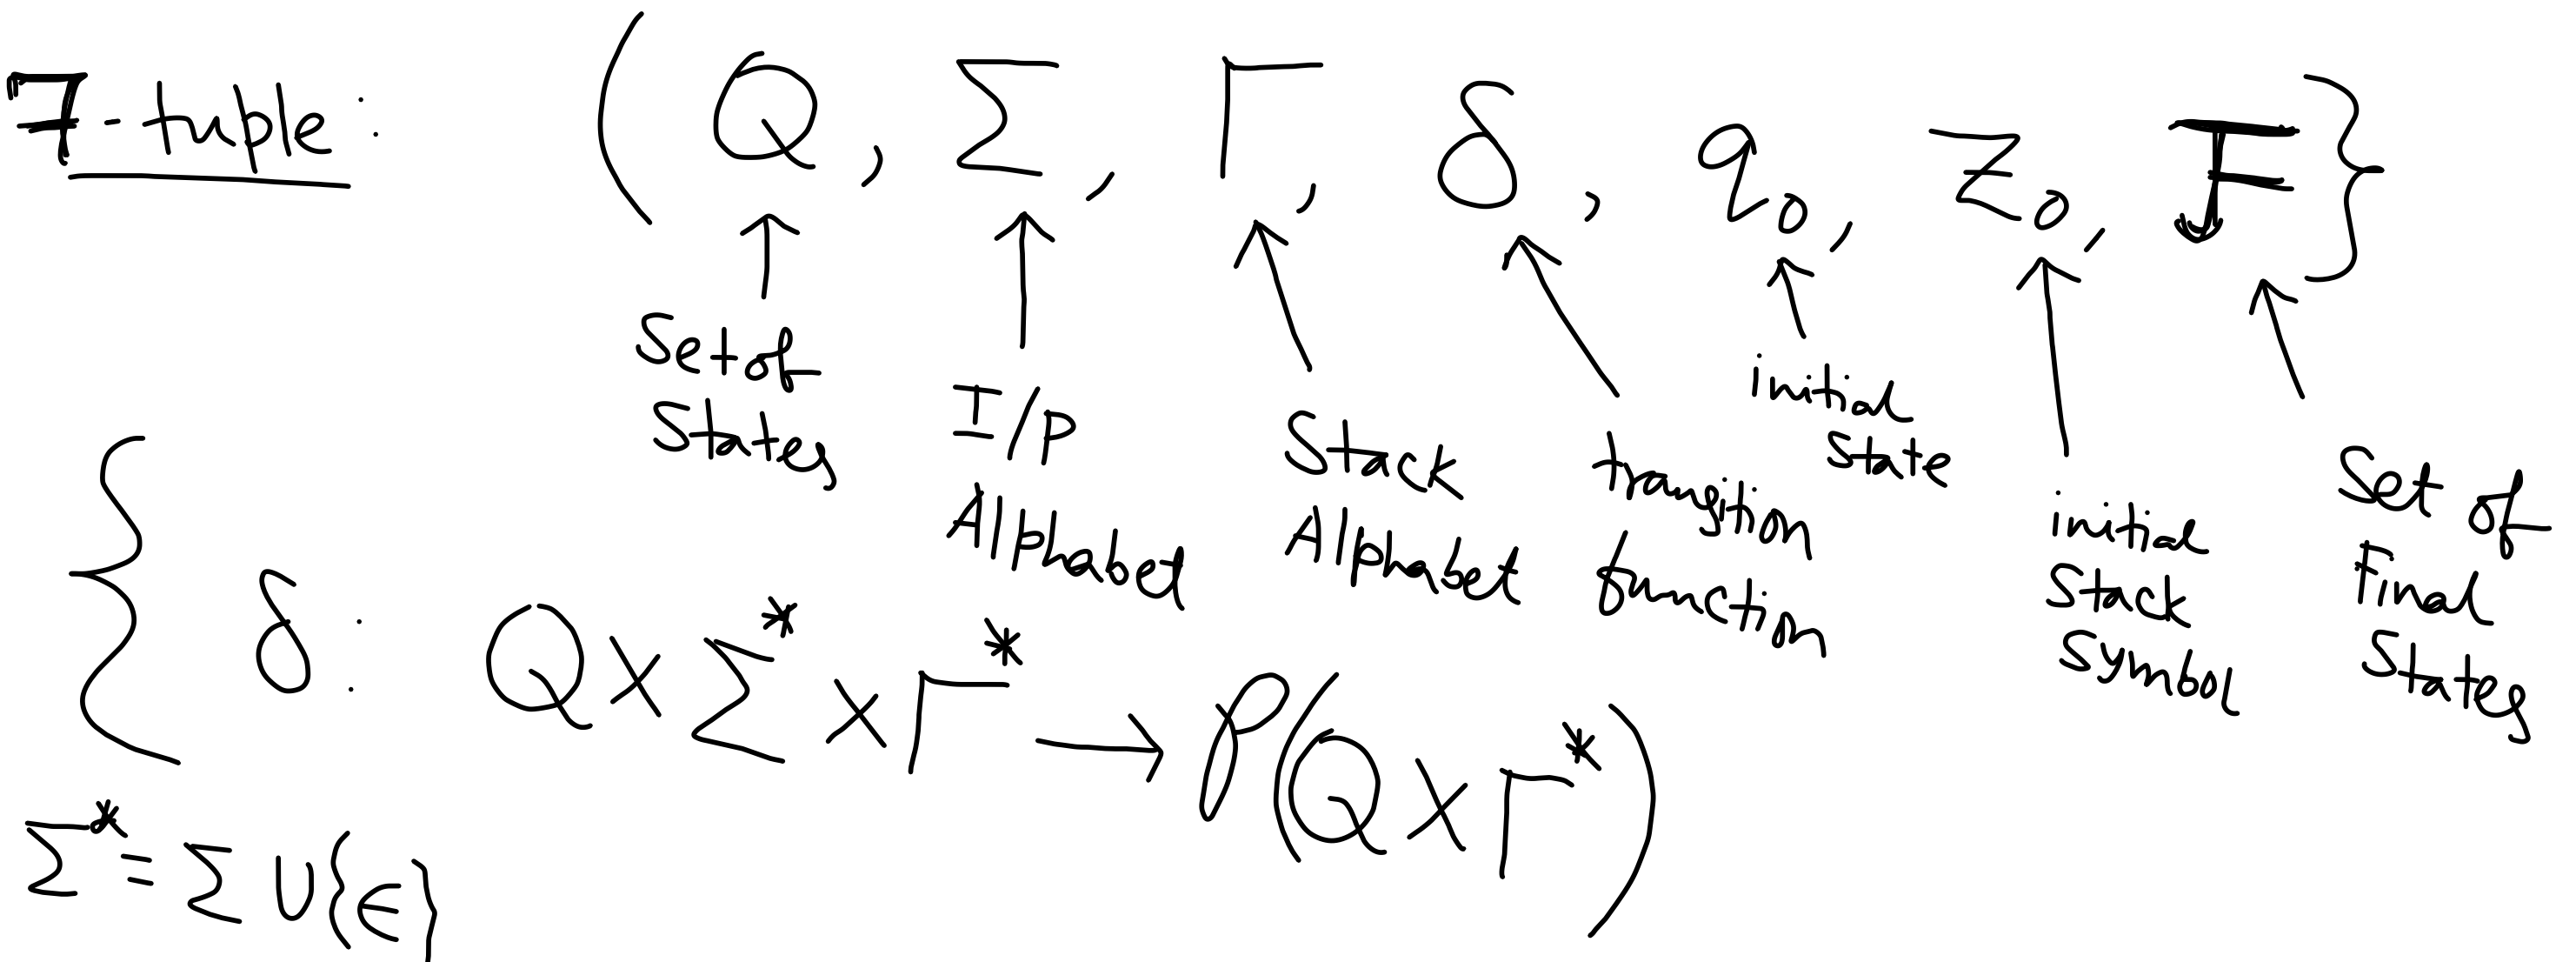 7-tuple: (Q, Σ, Γ, δ, q₀, Z₀, F}
Set of States
I/P Alphabet
Stack Alphabet
transition function
initial state
initial Stack Symbol
Set of Final States
δ: Q × Σ* × Γ* → P(Q × Γ*)
Σ* = Σ ∪ {ϵ}